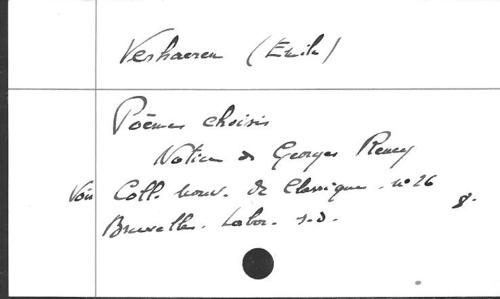 Verhaeren (Emile)
Poèmes choisis
Notice de Georges Rency
Voir Coll. nouv. de Classiques. n° 26
8.
Bruxelles. Labor. s.d.